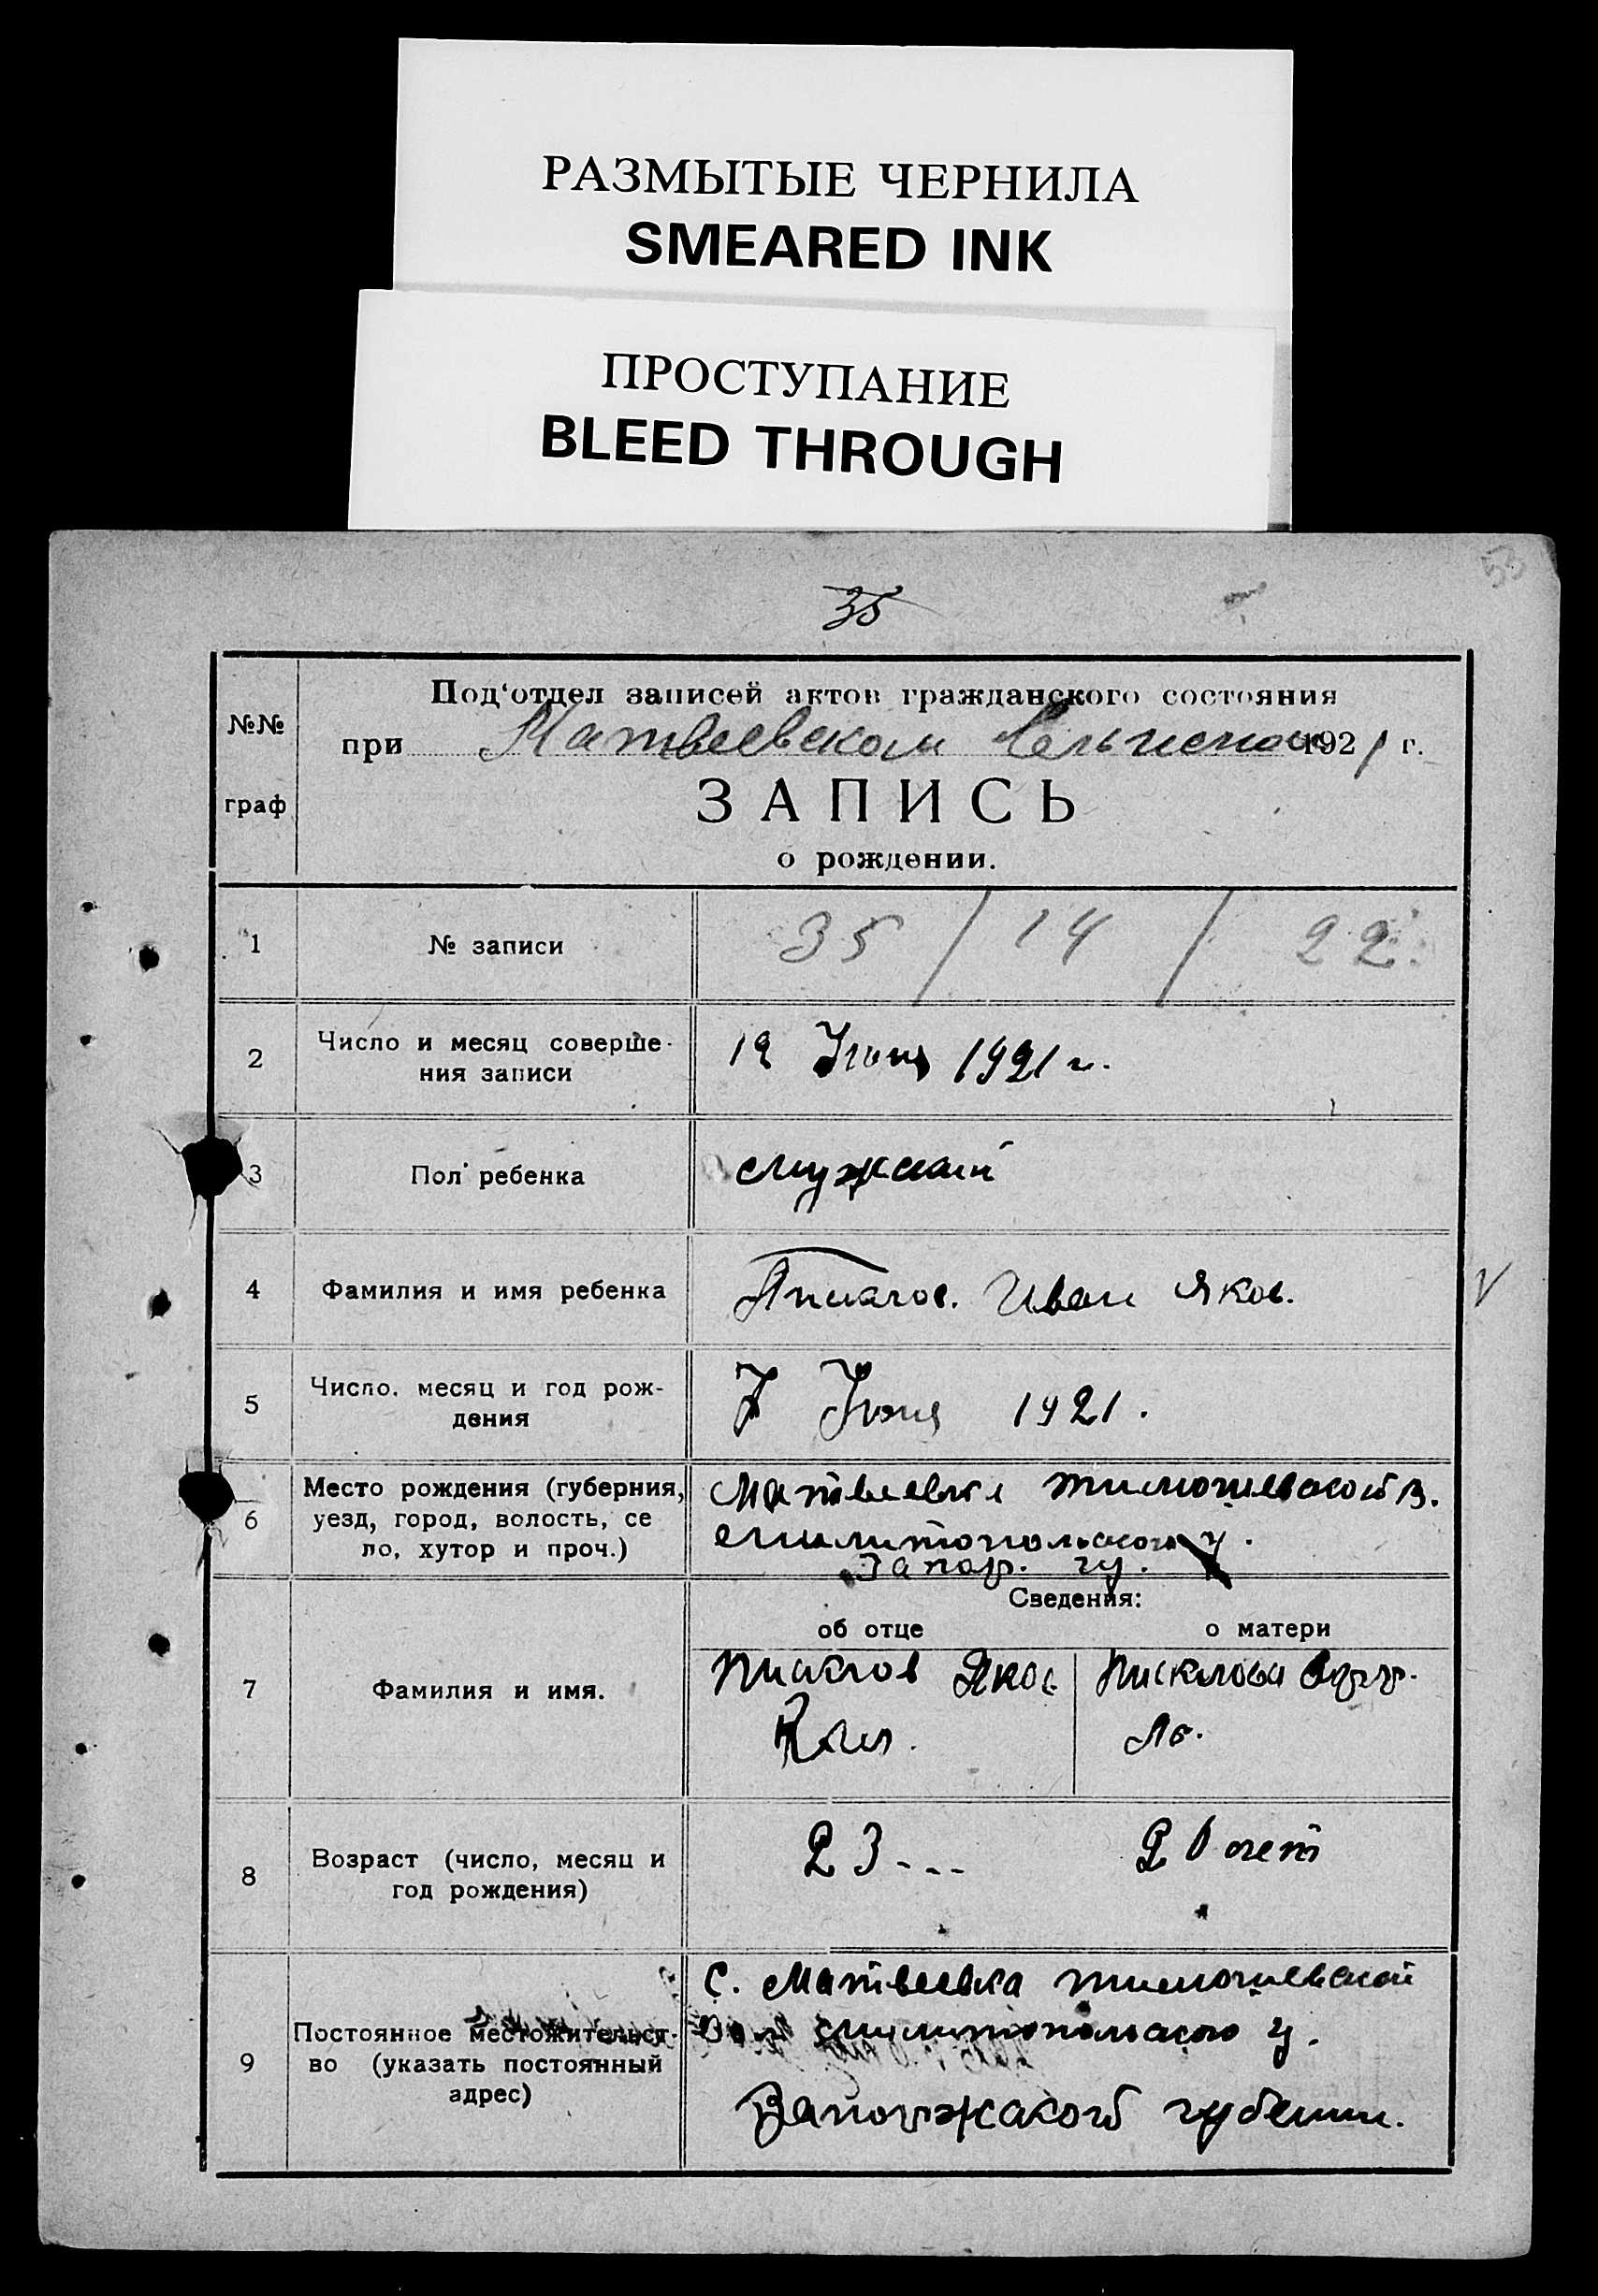 РАЗМЫТЫЕ ЧЕРНИЛА
SMEARED INK
ПРОСТУПАНИЕ
BLEED THROUGH
53
35
№№
граф
Под'отдел записей актов гражданского состояния
при Матвеевском 1921 г.
ЗАПИСЬ
о рождении.
1 № записи 35 / 14 / 22.
2 Число и месяц соверше-
ния записи
19 Июня 1921 г.
3 Пол ребенка мужский
4 Фамилия и имя ребенка Иван Яков.
5 Число, месяц и год рож-
дения
7 Июня 1921.
6 Место рождения (губерния,
уезд, город, волость, се
ло, хутор и проч.)
Матвеевка тимошевской в.
мелитопольского у.
Запор. гу.
Сведения:
об отце о матери
7 Фамилия и имя.
Яков
8 Возраст (число, месяц и
год рождения)
23--- 20 лет
9 Постоянное местожительст-
во (указать постоянный
адрес)
С. Матвеевка тимошевской
Вол мелитопольского у.
Запорожской губернии.